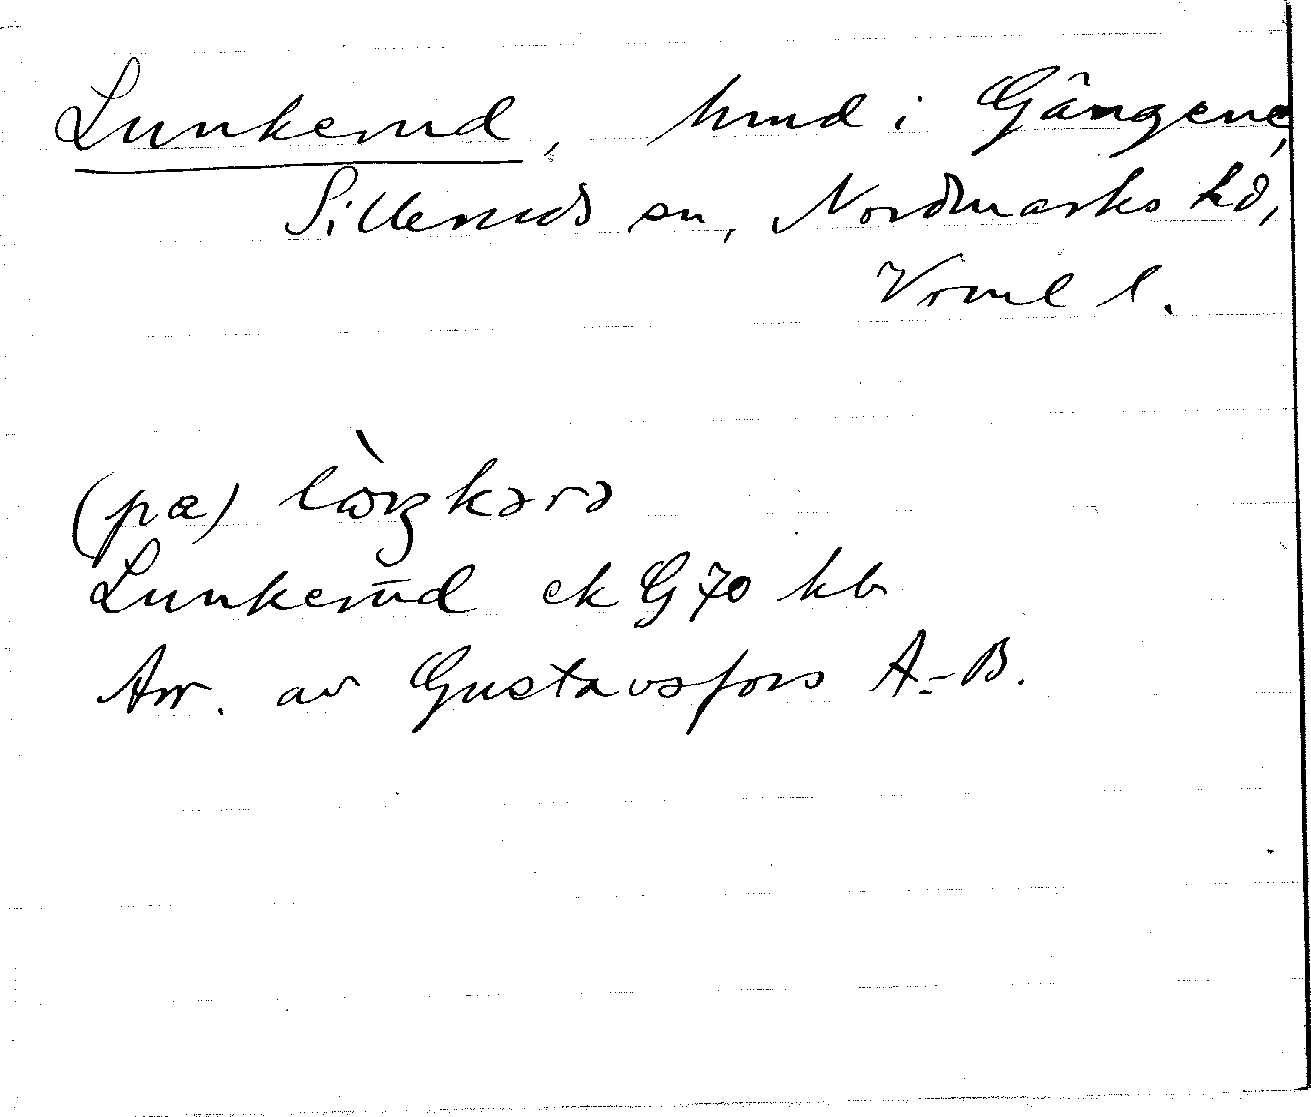 Lunkerud, hmd i Gängene,
Silleruds sn, Nordmarks hd,
Vrml l.
(pæ) lòŋkərə
Lunkerud ek G 70 kb
Arr. av Gustavsfors A.-B.